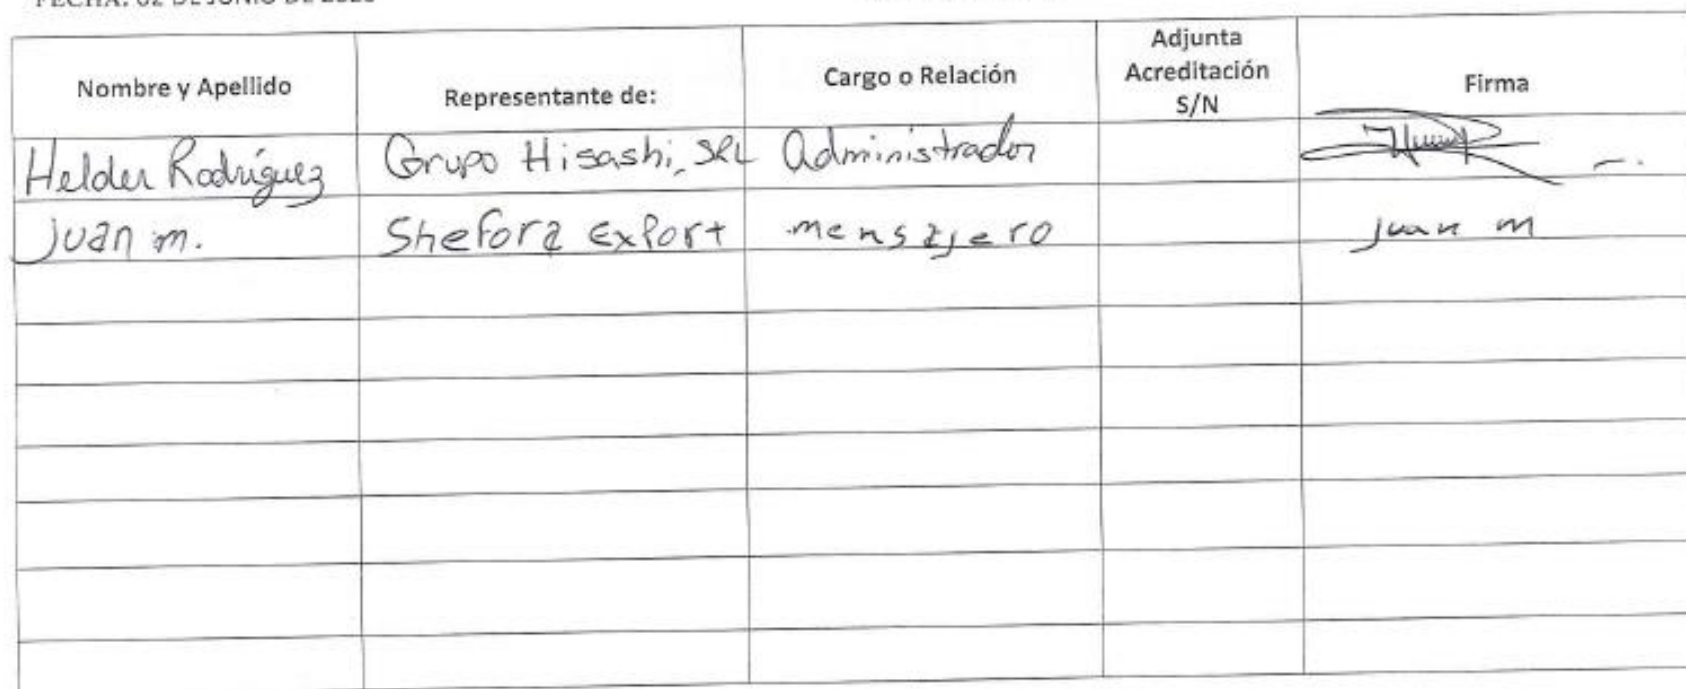 Nombre y Apellido Representante de: Cargo o Relación Adjunta Acreditación S/N Firma
Helder Rodríguez Grupo Hisashi, SRL Administrador
Juan m. Shefora Export mensajero juan m